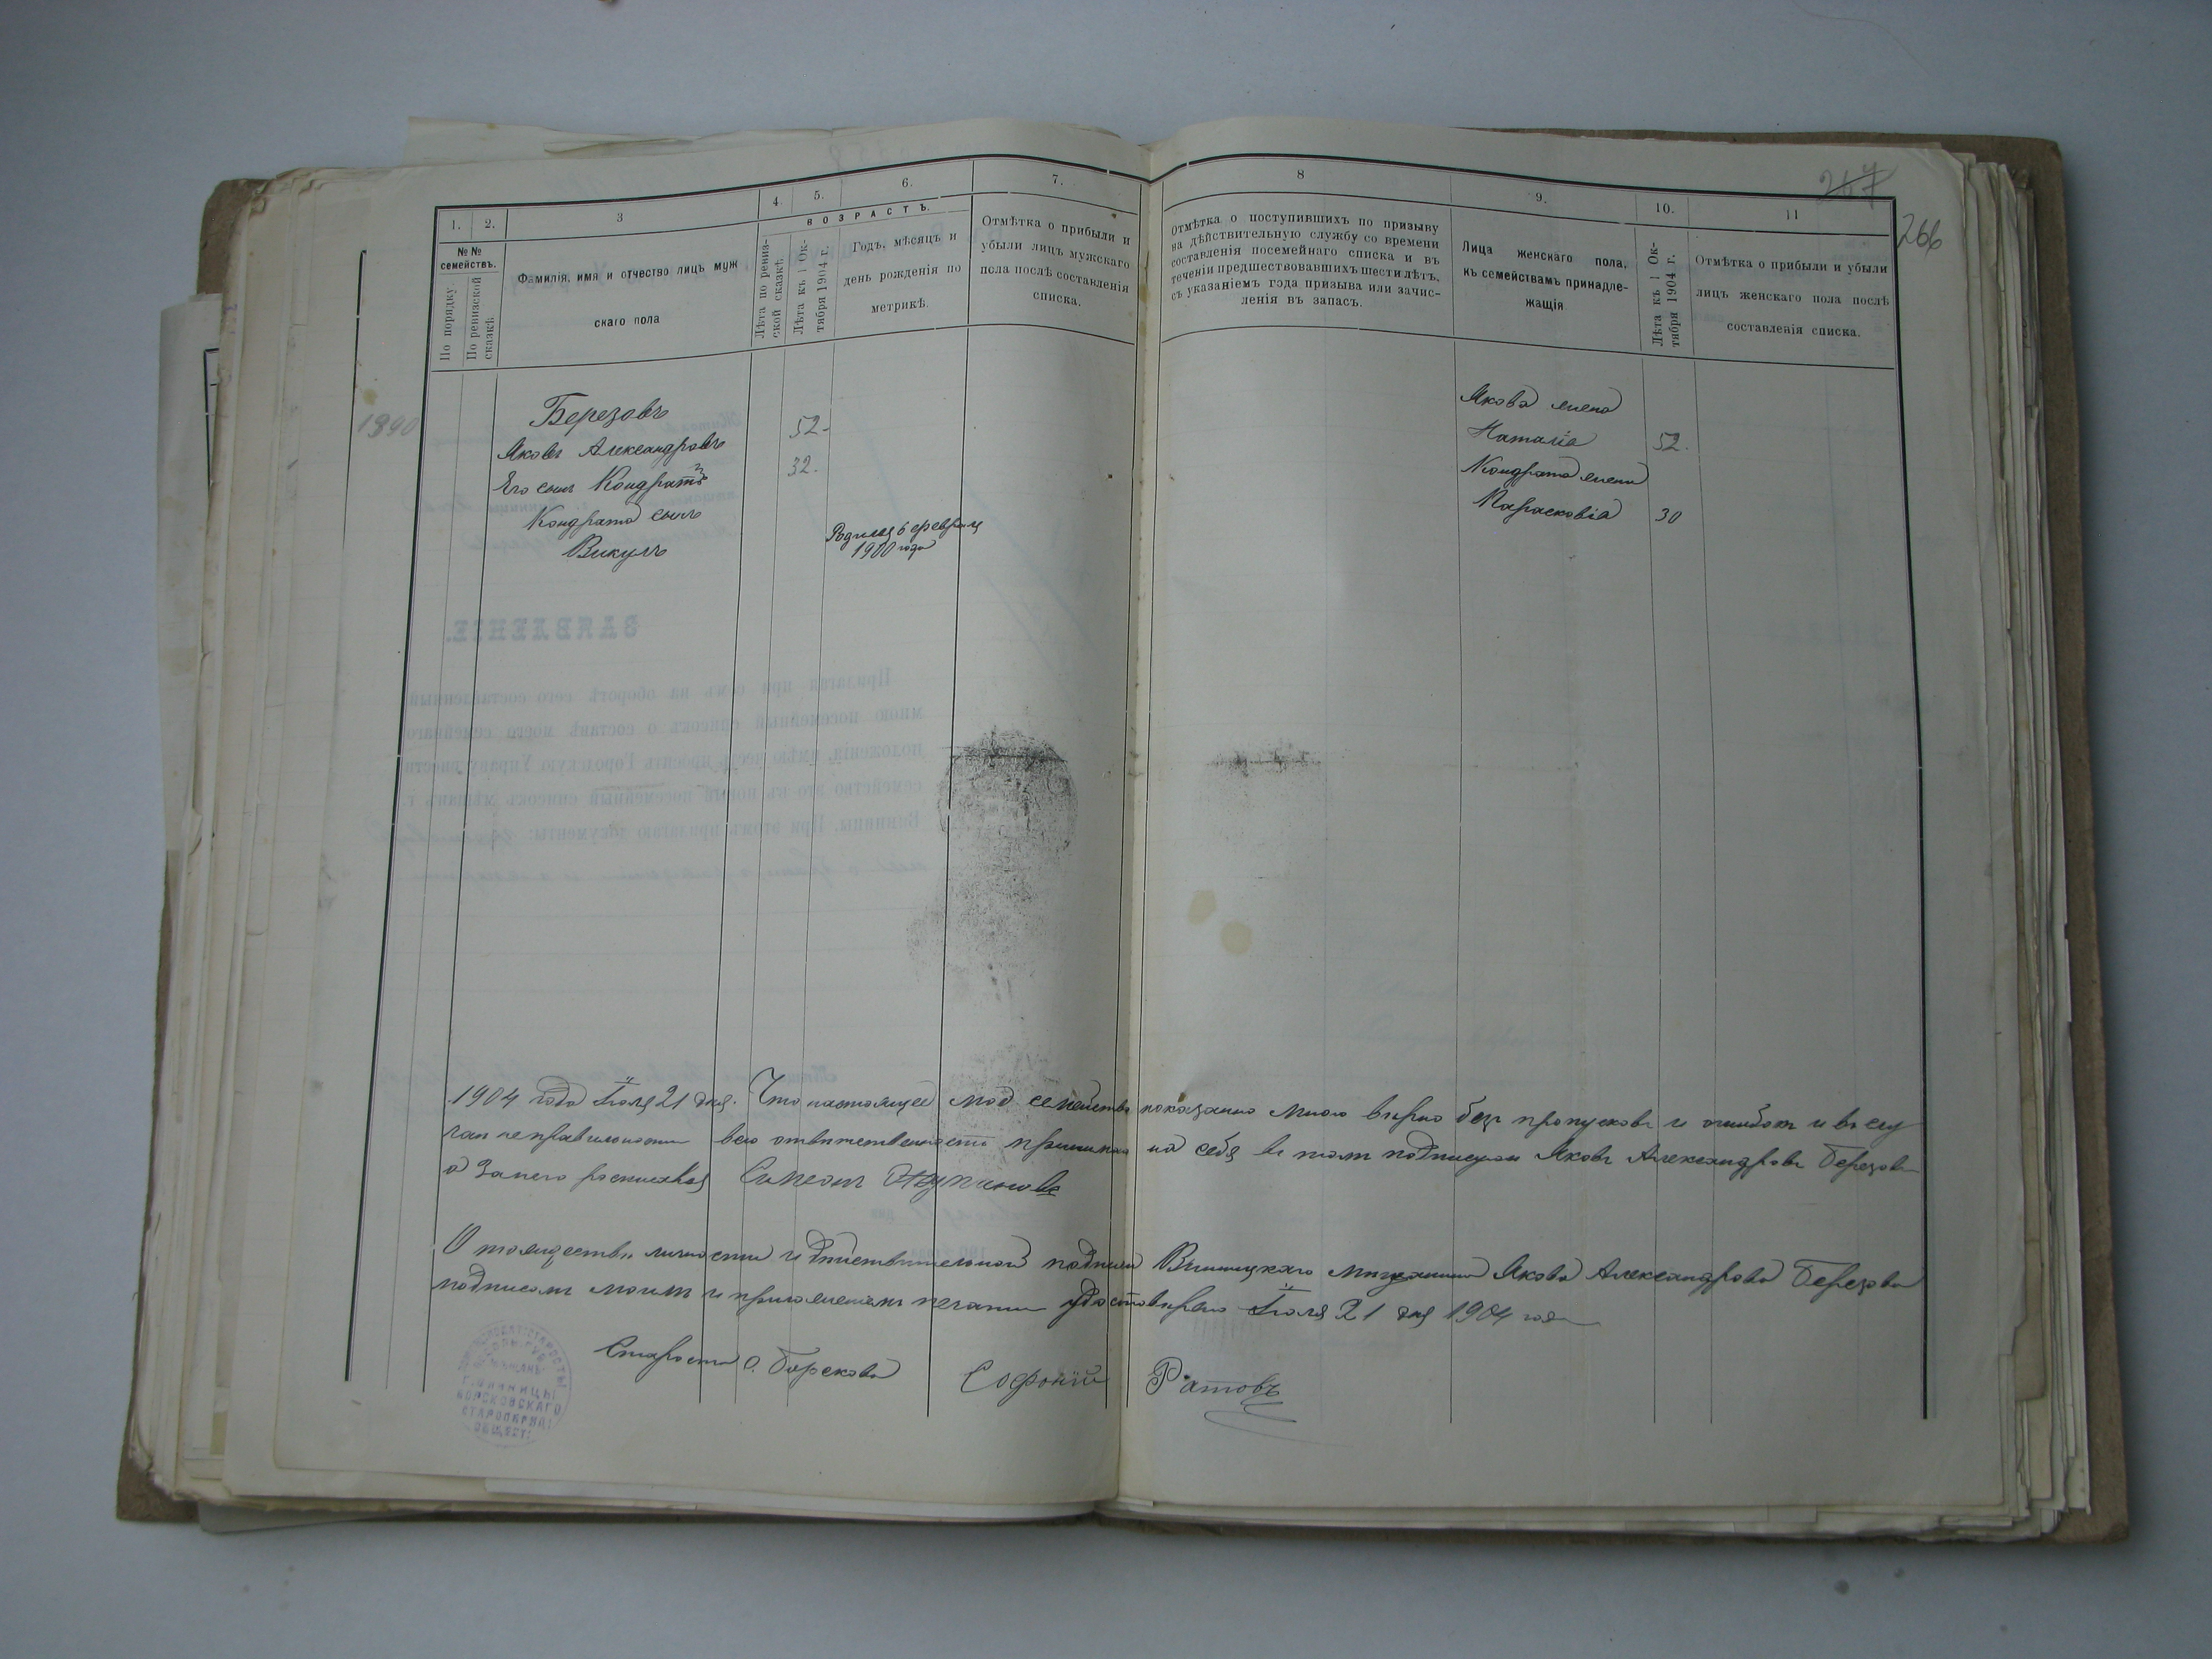 267
266
1.
2.
3
4.
5.
6.
7.
8
9.
10.
11
№ №
семействъ.
По порядку
По ревизской
сказкѣ
Фамилія, имя и отчество лицъ муж
скаго пола
ВОЗРАСТЪ.
Лѣта по ревиз-
ской сказкѣ.
Лѣта къ 1 Ок-
тября 1904 г.
Годъ, мѣсяцъ и
день рожденія по
метрикѣ.
Отмѣтка о прибыли и
убыли лицъ мужскаго
пола послѣ составленія
списка.
Отмѣтка о поступившихъ по призыву
на дѣйствительную службу со времени
составленія посемейнаго списка и въ
теченіи предшествовавшихъ шести лѣтъ,
съ указаніемъ года призыва или зачис-
ленія въ запасъ.
Лица женскаго пола,
къ семействамъ принадле-
жащія
Лѣта къ 1 Ок-
тября 1904 г.
Отмѣтка о прибыли и убыли
лицъ женскаго пола послѣ
составленія списка.
1890
Березовъ
Яковъ Александровъ 52.
Его сынъ Кондратъ 32.
Кондрата сынъ
Викулъ
Родился 6 февраля
1900 года
Якова жена
Наталія 52.
Кондрата жена
Парасковія 30
1904 года Іюля 21 дня. Что настоящее моё семейство показано мною вѣрно безъ пропусковъ и ошибокъ и въ слу
чаи неправильности всю отвѣтственность принимаю на себя въ томъ подписуюсь Яковъ Александровъ Березовъ
а за него росписался Симеонъ
О тождествѣ личности и дѣйствительной подписи Винницкаго мѣщанина Якова Александрова Березова
подписомъ моимъ и приложеніемъ печати удостовѣряю Іюля 21 дня 1904 года
Староста с. Борскова Софоній Ратовъ
Г. ВИННИЦЫ
БОРСКОВСКАГО
СТАРООБРЯД:
ОБЩЕСТ:
ЗАЯВЛЕНІЕ.
Прилагая при семъ на оборотѣ сего составленный
мною посемейный списокъ о составѣ моего семейнаго
положенія, имѣю честь просить Городскую Управу внести
семейство это въ новый посемейный списокъ мѣщанъ г.
Винницы. При этомъ прилагаю документы: